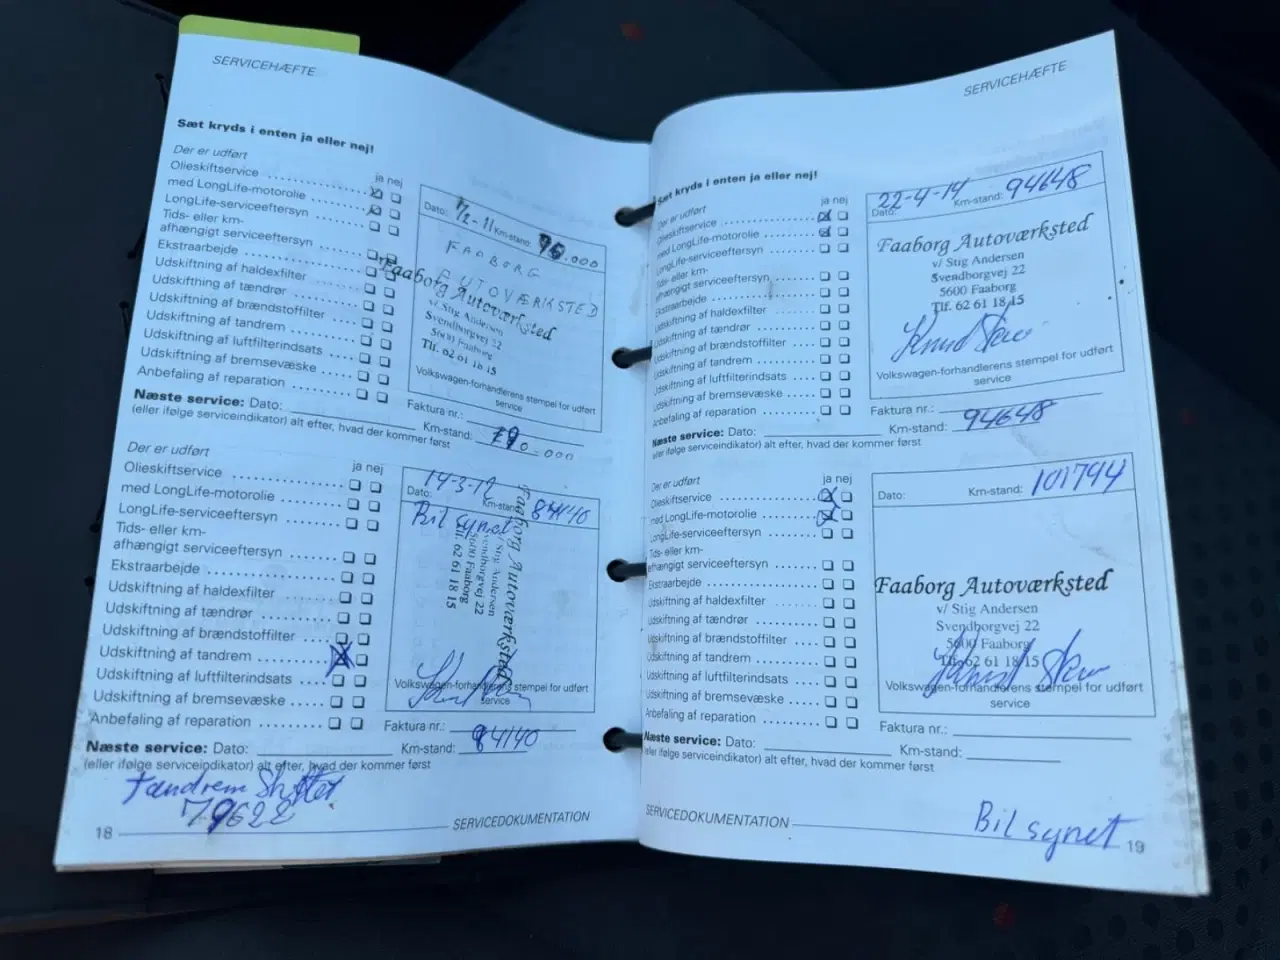 SERVICEHÆFTE
Sæt kryds i enten ja eller nej!
Der er udført
ja nej
Olieskiftservice
med LongLife-motorolie
LongLife-serviceeftersyn
Tids- eller km-
afhængigt serviceeftersyn
Ekstraarbejde
Udskiftning af haldexfilter
Udskiftning af tændrør
Udskiftning af brændstoffilter
Udskiftning af tandrem
Udskiftning af luftfilterindsats
Udskiftning af bremsevæske
Anbefaling af reparation
Dato: 1/2-11 Km-stand: .000
FAABORG
AUTOVÆRKSTED
Faaborg Autoværksted
v/ Stig Andersen
Svendborgvej 22
5600 Faaborg
Tlf. 62 61 18 15
Volkswagen-forhandlerens stempel for udført
service
Næste service: Dato:
Faktura nr.:
Km-stand:
(eller ifølge serviceindikator) alt efter, hvad der kommer først
Der er udført
ja nej
Olieskiftservice
med LongLife-motorolie
LongLife-serviceeftersyn
Tids- eller km-
afhængigt serviceeftersyn
Ekstraarbejde
Udskiftning af haldexfilter
Udskiftning af tændrør
Udskiftning af brændstoffilter
Udskiftning af tandrem
Udskiftning af luftfilterindsats
Udskiftning af bremsevæske
Anbefaling af reparation
Dato: 14-3-12 Km-stand: 84140
Bil synet
Faaborg Autoværksted
v/ Stig Andersen
Svendborgvej 22
5600 Faaborg
Tlf. 62 61 18 15
Volkswagen-forhandlerens stempel for udført
service
Faktura nr.:
Næste service: Dato: Km-stand: 84140
(eller ifølge serviceindikator) alt efter, hvad der kommer først
Tandrem Skiftet
18
SERVICEDOKUMENTATION
SERVICEHÆFTE
Sæt kryds i enten ja eller nej!
Der er udført
ja nej
Olieskiftservice
med LongLife-motorolie
LongLife-serviceeftersyn
Tids- eller km-
afhængigt serviceeftersyn
Ekstraarbejde
Udskiftning af haldexfilter
Udskiftning af tændrør
Udskiftning af brændstoffilter
Udskiftning af tandrem
Udskiftning af luftfilterindsats
Udskiftning af bremsevæske
Anbefaling af reparation
Dato: 22-4-14 Km-stand: 94648
Faaborg Autoværksted
v/ Stig Andersen
Svendborgvej 22
5600 Faaborg
Tlf. 62 61 18 15
Volkswagen-forhandlerens stempel for udført
service
Faktura nr.:
Næste service: Dato: Km-stand: 94648
(eller ifølge serviceindikator) alt efter, hvad der kommer først
Der er udført
ja nej
Olieskiftservice
med LongLife-motorolie
LongLife-serviceeftersyn
Tids- eller km-
afhængigt serviceeftersyn
Ekstraarbejde
Udskiftning af haldexfilter
Udskiftning af tændrør
Udskiftning af brændstoffilter
Udskiftning af tandrem
Udskiftning af luftfilterindsats
Udskiftning af bremsevæske
Anbefaling af reparation
Dato: Km-stand: 101794
Faaborg Autoværksted
v/ Stig Andersen
Svendborgvej 22
5600 Faaborg
Tlf. 62 61 18 15
Volkswagen-forhandlerens stempel for udført
service
Faktura nr.:
Næste service: Dato: Km-stand:
(eller ifølge serviceindikator) alt efter, hvad der kommer først
SERVICEDOKUMENTATION
Bil synet
19